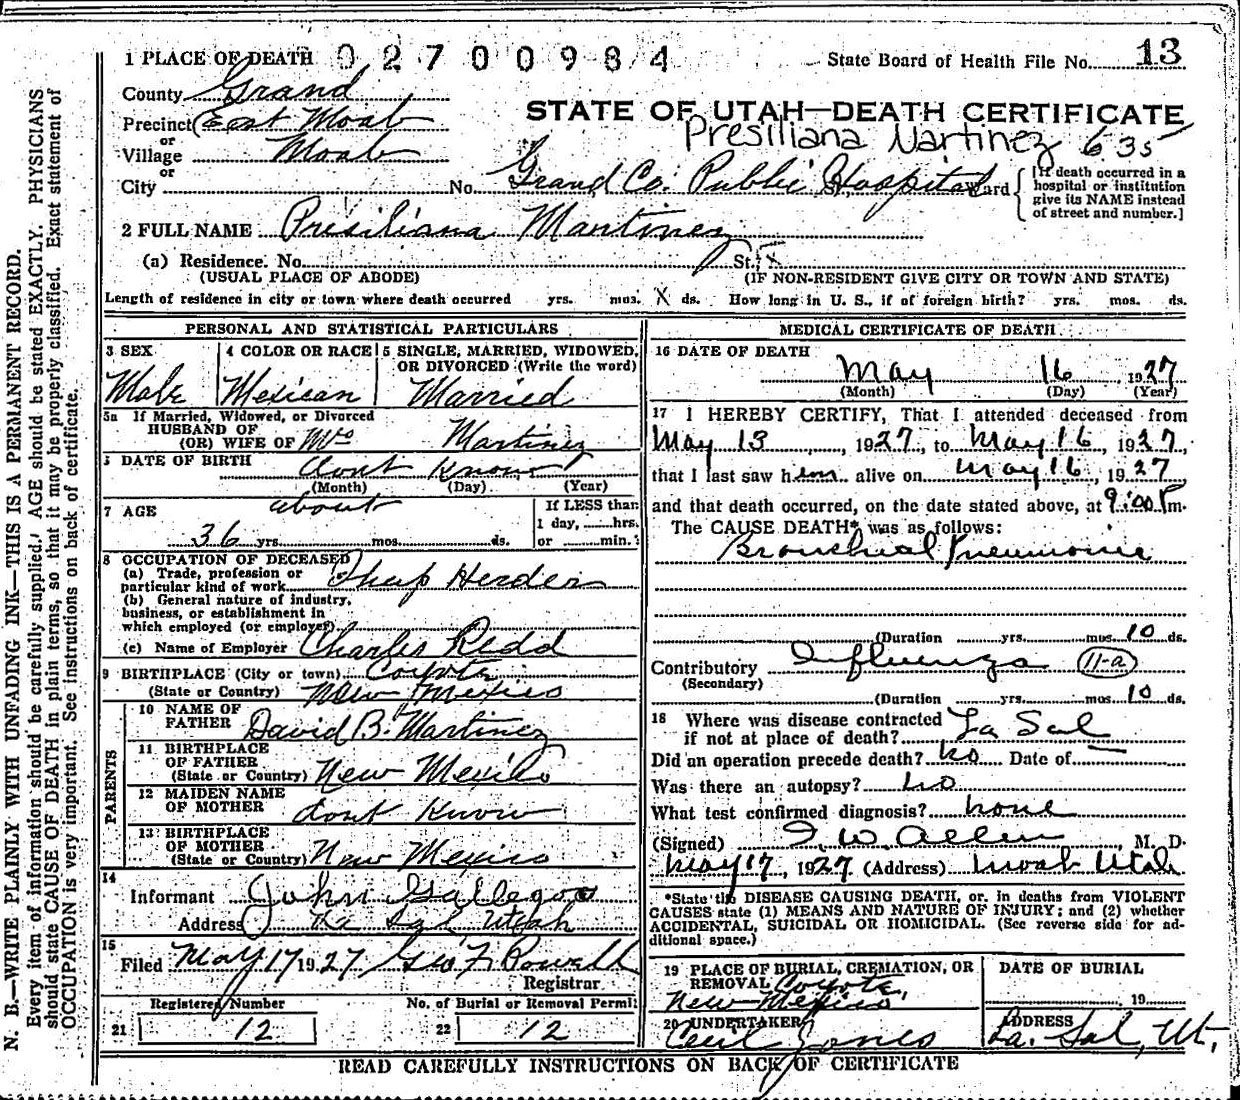 1 PLACE OF DEATH 02700984 State Board of Health File No. 13
County Grand
STATE OF UTAH—DEATH CERTIFICATE
Precinct East Moab
Presiliana Martinez 635
or
Village Moab
or
City No. Grand Co. Public Hospital St., Ward
[If death occurred in a
hospital or institution
give its NAME instead
of street and number.]
2 FULL NAME Presiliana Martinez
(a) Residence. No. St.
(USUAL PLACE OF ABODE) (IF NON-RESIDENT GIVE CITY OR TOWN AND STATE)
Length of residence in city or town where death occurred yrs. mos. X ds. How long in U. S., if of foreign birth? yrs. mos. ds.
PERSONAL AND STATISTICAL PARTICULARS
3 SEX
Male
4 COLOR OR RACE
Mexican
5 SINGLE, MARRIED, WIDOWED,
OR DIVORCED (Write the word)
Married
5a If Married, Widowed, or Divorced
HUSBAND OF
(OR) WIFE OF Mrs Martinez
DATE OF BIRTH dont know
(Month) (Day) (Year)
about
7 AGE
36 yrs. mos. ds.
If LESS than
1 day, hrs.
or min.
8 OCCUPATION OF DECEASED
(a) Trade, profession or
particular kind of work Sheep Herder
(b) General nature of industry,
business, or establishment in
which employed (or employer)
(c) Name of Employer Charles Redd
9 BIRTHPLACE (City or town) Coyote
(State or Country) New Mexico
PARENTS
10 NAME OF
FATHER David B. Martinez
11 BIRTHPLACE
OF FATHER
(State or Country) New Mexico
12 MAIDEN NAME
OF MOTHER dont know
13 BIRTHPLACE
OF MOTHER
(State or Country) New Mexico
14
Informant John Gallegos
Address La Sal Utah
15
Filed May 17 1927 Geo F. Powell
Registrar
Registered Number
21 12
No. of Burial or Removal Permit
22 12
MEDICAL CERTIFICATE OF DEATH
16 DATE OF DEATH
May 16 1927
(Month) (Day) (Year)
17 I HEREBY CERTIFY, That I attended deceased from
May 13, 1927, to May 16, 1927,
that I last saw him alive on May 16, 1927
and that death occurred, on the date stated above, at 9:00 P.m.
The CAUSE DEATH* was as follows:
Bronchial Pneumonia
(Duration yrs. mos 10 ds.
Contributory Influenza 11-a
(Secondary)
(Duration yrs. mos. 10 ds.
18 Where was disease contracted
if not at place of death? La Sal
Did an operation precede death? no Date of —
Was there an autopsy? no
What test confirmed diagnosis? none
(Signed) I. W. Allen, M. D.
May 17, 1927 (Address) Moab Utah
*State the DISEASE CAUSING DEATH, or, in deaths from VIOLENT
CAUSES state (1) MEANS AND NATURE OF INJURY; and (2) whether
ACCIDENTAL, SUICIDAL OR HOMICIDAL. (See reverse side for ad-
ditional space.)
19 PLACE OF BURIAL, CREMATION, OR
REMOVAL Coyote,
New Mexico
DATE OF BURIAL
19
20 UNDERTAKER
Cecil Jones
ADDRESS
La. Sal, Ut,
READ CAREFULLY INSTRUCTIONS ON BACK OF CERTIFICATE
N. B.—WRITE PLAINLY WITH UNFADING INK—THIS IS A PERMANENT RECORD.
Every item of information should be carefully supplied. AGE should be stated EXACTLY. PHYSICIANS
should state CAUSE OF DEATH in plain terms, so that it may be properly classified. Exact statement of
OCCUPATION is very important. See instructions on back of certificate.